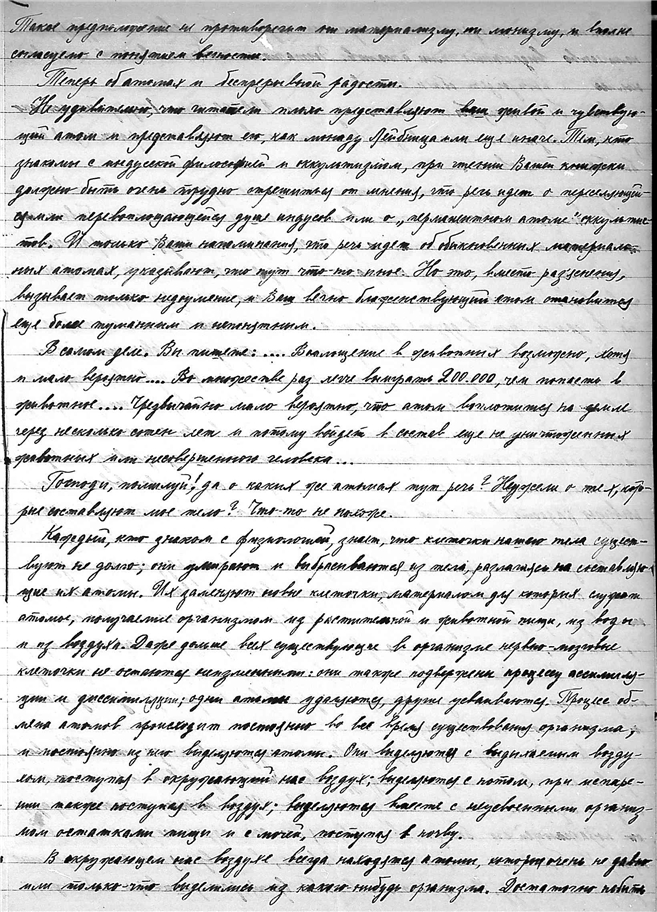 Такое предположение не противоречит ни материализму, ни монизму, и вполне
согласуемо с понятием вечности.
Теперь об атомах и беспрерывной радости.
Не удивительно, что читатели плохо представляют ваш живой и чувствую-
щий атом и представляют его, как монаду Лейбница или еще иначе. Тем, кто
знакомы с индусской философией и оккультизмом, при чтении Вашей книжки
должно быть очень трудно отрешиться от мнения, что речь идет о переселяющей-
ся или перевоплощающейся душе индусов или о „перманентном атоме" оккультис-
тов. И только Ваши напоминания, что речь идет об обыкновенных материаль-
ных атомах, указывают, что тут что-то иное. Но это, вместо разъяснения,
вызывает только недоумение, и Ваш вечно блаженствующий атом становится
еще более туманным и непонятным.
В самом деле. Вы пишете: .... Воплощение в животных возможно, хотя
и мало вероятно .... Во множестве раз легче выиграть 200.000, чем попасть в
животное .... Чрезвычайно мало вероятно, что атом воплотится на земле
через несколько сотен лет и потому войдет в состав еще не уничтоженных
животных или несовершенного человека...
Господи, помилуй! да о каких же атомах тут речь? Неужели о тех, кото-
рые составляют мое тело? Что-то не похоже.
Каждый, кто знаком с физиологией, знает, что клеточки нашего тела сущест-
вуют не долго; они умирают и выбрасываются из тела, разлагаясь на составляю-
щие их атомы. Их заменяют новые клеточки, материалом для которых служат
атомы, получаемые организмом из растительной и животной пищи, из воды
и из воздуха. Даже дольше всех существующие в организме нервно-мозговые
клеточки не остаются неизменными: они также подвержены процессу ассимиля-
ции и диссимиляции; одни атомы удаляются, другие усваиваются. Процесс об-
мена атомов происходит постоянно во все время существования организма;
и постоянно из него выделяются атомы. Они выделяются с выдыхаемым возду-
хом, поступая в окружающий нас воздух; выделяются с потом, при испаре-
нии также поступая в воздух; выделяются вместе с неусвоенными организ-
мом остатками пищи и с мочей, поступая в почву.
В окружающем нас воздухе всегда находятся атомы, которые очень не давно
или только-что выделились из какого-нибудь организма. Достаточно побыть